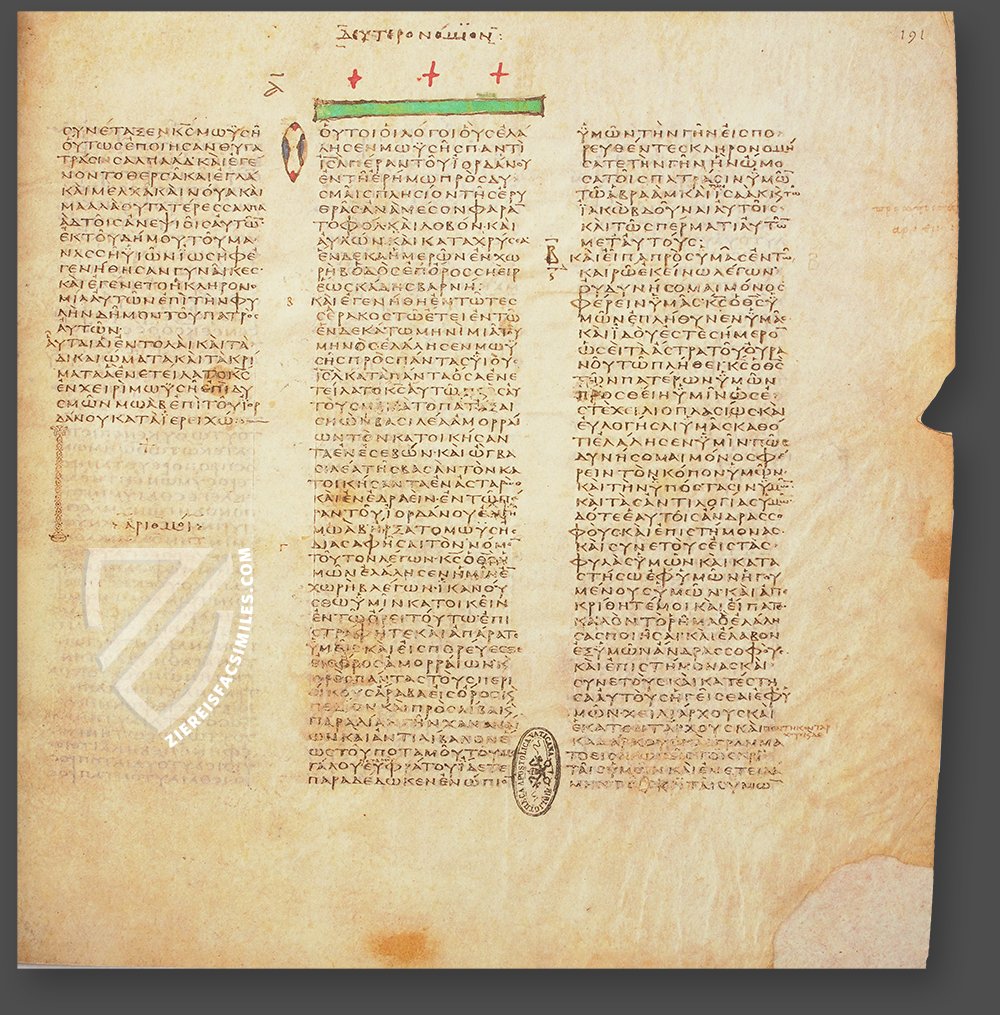 ΔΕΥΤΕΡΟΝΟΜΙΟΝ
191
ΣΥΝΕΤΑΞΕΝ ΚΣ ΜΩΫΣΗ
ΟΥΤΩΣ ΕΠΟΙΗΣΑΝ ΘΥΓΑ
ΤΡΑΣΙΝ ΣΑΛΠΑΑΔ ΚΑΙ ΕΓΕ
ΝΟΝΤΟ ΘΕΡΣΑ ΚΑΙ ΕΓΛΑ
ΚΑΙ ΜΕΛΧΑ ΚΑΙ ΝΟΥΑ ΚΑΙ
ΜΑΑΛΑ ΘΥΓΑΤΕΡΕΣ ΣΑΛΠΑ
ΑΔ ΤΟΙΣ ΑΝΕΨΙΟΙΣ ΑΥΤΩΝ
ΕΚ ΤΟΥ ΔΗΜΟΥ ΤΟΥ ΜΑ
ΝΑΣΣΗ ΥΙΩΝ ΙΩΣΗΦ Ε
ΓΕΝΗΘΗΣΑΝ ΓΥΝΑΙΚΕΣ
ΚΑΙ ΕΓΕΝΕΤΟ Η ΚΛΗΡΟΝΟ
ΜΙΑ ΑΥΤΩΝ ΕΠΙ ΤΗΝ ΦΥ
ΛΗΝ ΔΗΜΟΥ ΤΟΥ ΠΑΤΡΟΣ
ΑΥΤΩΝ
ΑΥΤΑΙ ΑΙ ΕΝΤΟΛΑΙ ΚΑΙ ΤΑ
ΔΙΚΑΙΩΜΑΤΑ ΚΑΙ ΤΑ ΚΡΙ
ΜΑΤΑ Α ΕΝΕΤΕΙΛΑΤΟ ΚΣ
ΕΝ ΧΕΙΡΙ ΜΩΥΣΗ ΕΠΙ ΔΥ
ΣΜΩΝ ΜΩΑΒ ΕΠΙ ΤΟΥ ΙΟΡ
ΔΑΝΟΥ ΚΑΤΑ ΙΕΡΕΙΧΩ
ΑΡΙΘΜΟΙ
ΟΥΤΟΙ ΟΙ ΛΟΓΟΙ ΟΥΣ ΕΛΑ
ΛΗΣΕΝ ΜΩΥΣΗΣ ΠΑΝΤΙ
ΙΣΛ ΠΕΡΑΝ ΤΟΥ ΙΟΡΔΑΝΟΥ
ΕΝ ΤΗ ΕΡΗΜΩ ΠΡΟΣ ΔΥ
ΣΜΑΙΣ ΠΛΗΣΙΟΝ ΤΗΣ ΕΡΥ
ΘΡΑΣ ΑΝΑ ΜΕΣΟΝ ΦΑΡΑ
ΤΟΦΟΛ ΚΑΙ ΛΟΒΟΝ ΚΑΙ
ΑΥΛΩΝ ΚΑΙ ΚΑΤΑΧΡΥΣΕΑ
ΕΝΔΕΚΑ ΗΜΕΡΩΝ ΕΝ ΧΩ
ΡΗΒ ΟΔΟΣ ΕΠ ΟΡΟΣ ΣΗΕΙΡ
ΕΩΣ ΚΑΔΗΣ ΒΑΡΝΗ
ΚΑΙ ΕΓΕΝΗΘΗ ΕΝ ΤΩ ΤΕΣ
ΣΕΡΑΚΟΣΤΩ ΕΤΕΙ ΕΝ ΤΩ
ΕΝΔΕΚΑΤΩ ΜΗΝΙ ΜΙΑ ΤΟΥ
ΜΗΝΟΣ ΕΛΑΛΗΣΕΝ ΜΩΥ
ΣΗΣ ΠΡΟΣ ΠΑΝΤΑΣ ΥΙΟΥΣ
ΙΣΛ ΚΑΤΑ ΠΑΝΤΑ ΟΣΑ ΕΝΕ
ΤΕΙΛΑΤΟ ΚΣ ΑΥΤΩ ΠΡΟΣ ΑΥ
ΤΟΥΣ ΜΕΤΑ ΤΟ ΠΑΤΑΞΑΙ
ΣΗΩΝ ΒΑΣΙΛΕΑ ΑΜΟΡΡΑΙ
ΩΝ ΤΟΝ ΚΑΤΟΙΚΗΣΑΝ
ΤΑ ΕΝ ΕΣΕΒΩΝ ΚΑΙ ΩΓ ΒΑ
ΣΙΛΕΑ ΤΗΣ ΒΑΣΑΝ ΤΟΝ ΚΑ
ΤΟΙΚΗΣΑΝΤΑ ΕΝ ΑΣΤΑΡΩΘ
ΚΑΙ ΕΝ ΕΔΡΑΕΙΝ ΕΝ ΤΩ ΠΕ
ΡΑΝ ΤΟΥ ΙΟΡΔΑΝΟΥ ΕΝ ΓΗ
ΜΩΑΒ ΗΡΞΑΤΟ ΜΩΥΣΗΣ
ΔΙΑΣΑΦΗΣΑΙ ΤΟΝ ΝΟΜΟΝ
ΤΟΥΤΟΝ ΛΕΓΩΝ ΚΣ Ο ΘΣ Η
ΜΩΝ ΕΛΑΛΗΣΕΝ ΗΜΙΝ ΕΝ
ΧΩΡΗΒ ΛΕΓΩΝ ΙΚΑΝΟΥ
ΣΘΩ ΥΜΙΝ ΚΑΤΟΙΚΕΙΝ
ΕΝ ΤΩ ΟΡΕΙ ΤΟΥΤΩ ΕΠΙ
ΣΤΡΑΦΗΤΕ ΚΑΙ ΑΠΑΡΑΤΕ
ΥΜΕΙΣ ΚΑΙ ΕΙΣΠΟΡΕΥΕΣΘΕ
ΕΙΣ ΟΡΟΣ ΑΜΟΡΡΑΙΩΝ Κ
ΠΡΟΣ ΠΑΝΤΑΣ ΤΟΥΣ ΠΕΡΙ
ΟΙΚΟΥΣ ΑΡΑΒΑ ΕΙΣ ΟΡΟΣ Κ
ΠΕΔΙΟΝ ΚΑΙ ΠΡΟΣ ΛΙΒΑ Κ
ΠΑΡΑΛΙΑΝ ΓΗΝ ΧΑΝΑΝΑΙ
ΩΝ ΚΑΙ ΑΝΤΙΛΙΒΑΝΟΝ Ε
ΩΣ ΤΟΥ ΠΟΤΑΜΟΥ ΤΟΥ ΜΕ
ΓΑΛΟΥ ΕΥΦΡΑΤΟΥ ΙΔΕΤΕ
ΠΑΡΑΔΕΔΩΚΕΝ ΕΝΩΠΙΟΝ
ΥΜΩΝ ΤΗΝ ΓΗΝ ΕΙΣΠΟ
ΡΕΥΘΕΝΤΕΣ ΚΛΗΡΟΝΟΜΗ
ΣΑΤΕ ΤΗΝ ΓΗΝ ΗΝ ΩΜΟ
ΣΑ ΤΟΙΣ ΠΑΤΡΑΣΙΝ ΥΜΩΝ
ΤΩ ΑΒΡΑΑΜ ΚΑΙ ΙΣΑΑΚ Κ ΤΩ
ΙΑΚΩΒ ΔΟΥΝΑΙ ΑΥΤΟΙΣ
ΚΑΙ ΤΩ ΣΠΕΡΜΑΤΙ ΑΥΤΩΝ
ΜΕΤ ΑΥΤΟΥΣ
ΚΑΙ ΕΙΠΑ ΠΡΟΣ ΥΜΑΣ ΕΝ ΤΩ
ΚΑΙΡΩ ΕΚΕΙΝΩ ΛΕΓΩΝ
ΟΥ ΔΥΝΗΣΟΜΑΙ ΜΟΝΟΣ
ΦΕΡΕΙΝ ΥΜΑΣ ΚΣ Ο ΘΣ Υ
ΜΩΝ ΕΠΛΗΘΥΝΕΝ ΥΜΑΣ
ΚΑΙ ΙΔΟΥ ΕΣΤΕ ΣΗΜΕΡΟΝ
ΩΣΕΙ ΤΑ ΑΣΤΡΑ ΤΟΥ ΟΥΡΑ
ΝΟΥ ΤΩ ΠΛΗΘΕΙ ΚΣ Ο ΘΣ
ΤΩΝ ΠΑΤΕΡΩΝ ΥΜΩΝ
ΠΡΟΣΘΕΙΗ ΥΜΙΝ ΩΣ Ε
ΣΤΕ ΧΕΙΛΙΟΠΛΑΣΙΩΣ ΚΑΙ
ΕΥΛΟΓΗΣΑΙ ΥΜΑΣ ΚΑΘΟ
ΤΙ ΕΛΑΛΗΣΕΝ ΥΜΙΝ ΠΩΣ
ΔΥΝΗΣΟΜΑΙ ΜΟΝΟΣ ΦΕ
ΡΕΙΝ ΤΟΝ ΚΟΠΟΝ ΥΜΩΝ
ΚΑΙ ΤΗΝ ΥΠΟΣΤΑΣΙΝ ΥΜΩΝ
ΚΑΙ ΤΑΣ ΑΝΤΙΛΟΓΙΑΣ ΥΜΩΝ
ΔΟΤΕ ΕΑΥΤΟΙΣ ΑΝΔΡΑΣ ΣΟ
ΦΟΥΣ ΚΑΙ ΕΠΙΣΤΗΜΟΝΑΣ
ΚΑΙ ΣΥΝΕΤΟΥΣ ΕΙΣ ΤΑΣ
ΦΥΛΑΣ ΥΜΩΝ ΚΑΙ ΚΑΤΑ
ΣΤΗΣΩ ΕΦ ΥΜΩΝ ΗΓΟΥ
ΜΕΝΟΥΣ ΥΜΩΝ ΚΑΙ ΑΠΕ
ΚΡΙΘΗΤΕ ΜΟΙ ΚΑΙ ΕΙΠΑΤΕ
ΚΑΛΟΝ ΤΟ ΡΗΜΑ Ο ΕΛΑΛΗ
ΣΑΣ ΠΟΙΗΣΑΙ ΚΑΙ ΕΛΑΒΟΝ
ΕΞ ΥΜΩΝ ΑΝΔΡΑΣ ΣΟΦΟΥΣ
ΚΑΙ ΕΠΙΣΤΗΜΟΝΑΣ ΚΑΙ
ΣΥΝΕΤΟΥΣ ΚΑΙ ΚΑΤΕΣΤΗ
ΣΑ ΑΥΤΟΥΣ ΗΓΕΙΣΘΑΙ ΕΦ Υ
ΜΩΝ ΧΕΙΛΙΑΡΧΟΥΣ ΚΑΙ
ΕΚΑΤΟΝΤΑΡΧΟΥΣ ΚΑΙ ΠΕΝΤΗΚΟΝΤΑΡ
ΧΟΥΣ ΚΑΙ ΔΕ
ΚΑΔΑΡΧΟΥΣ ΚΑΙ ΓΡΑΜΜΑ
ΤΟΕΙΣΑΓΩΓΕΙΣ ΤΟΙΣ ΚΡΙ
ΤΑΙΣ ΥΜΩΝ ΚΑΙ ΕΝΕΤΕΙΛΑ
ΜΗΝ ΤΟΙΣ ΚΡΙΤΑΙΣ ΥΜΩ
BIBLIOTHECA APOSTOLICA VATICANA
ZIEREISFACSIMILES.COM